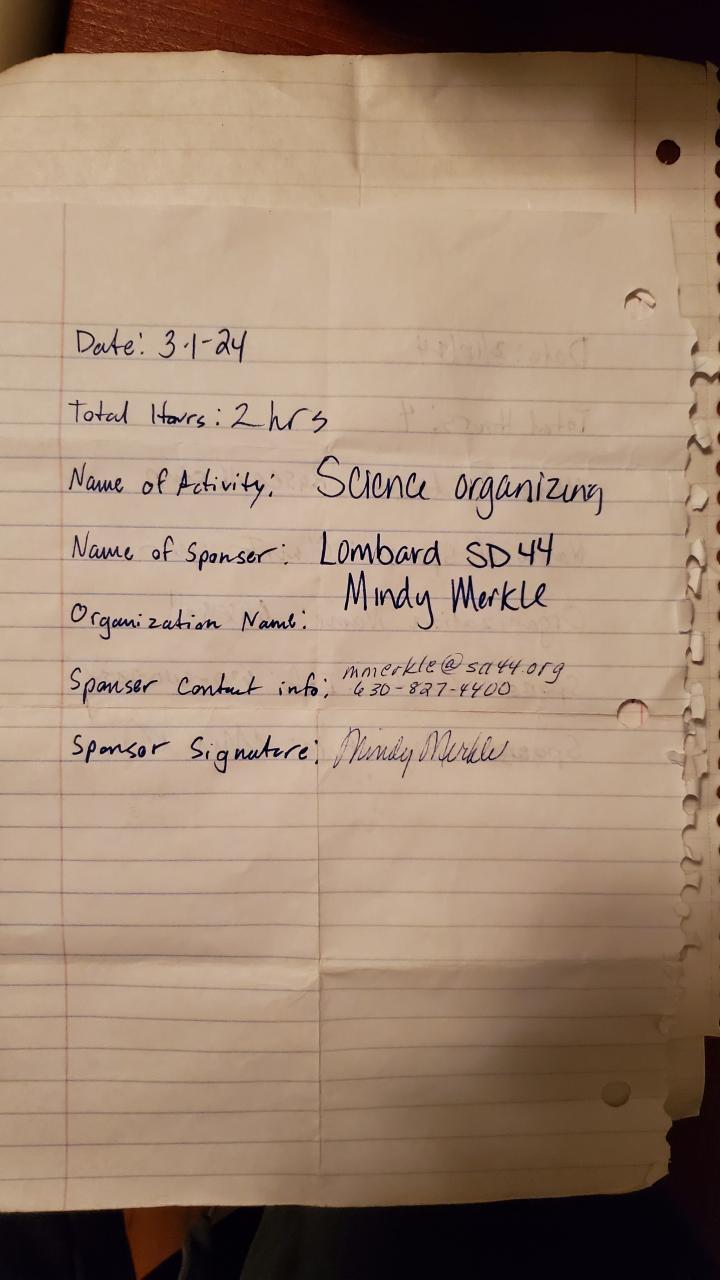 Date: 3-1-24
Total Hours: 2 hrs
Name of Activity: Science organizing
Name of Sponser: Lombard SD44
Mindy Merkle
Organization Name:
Sponser Contact info: mmerkle@sd44.org
630-827-4400
Sponsor Signature: Mindy Merkle